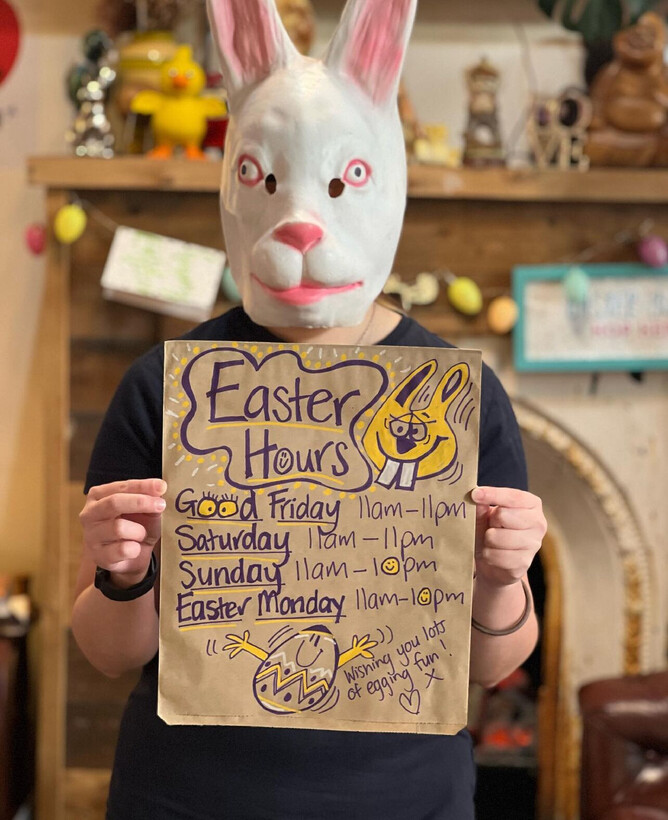 Easter
Hours
Good Friday 11am-11pm
Saturday 11am-11pm
Sunday 11am-10pm
Easter Monday 11am-10pm
Wishing you lots
of egging fun!
x